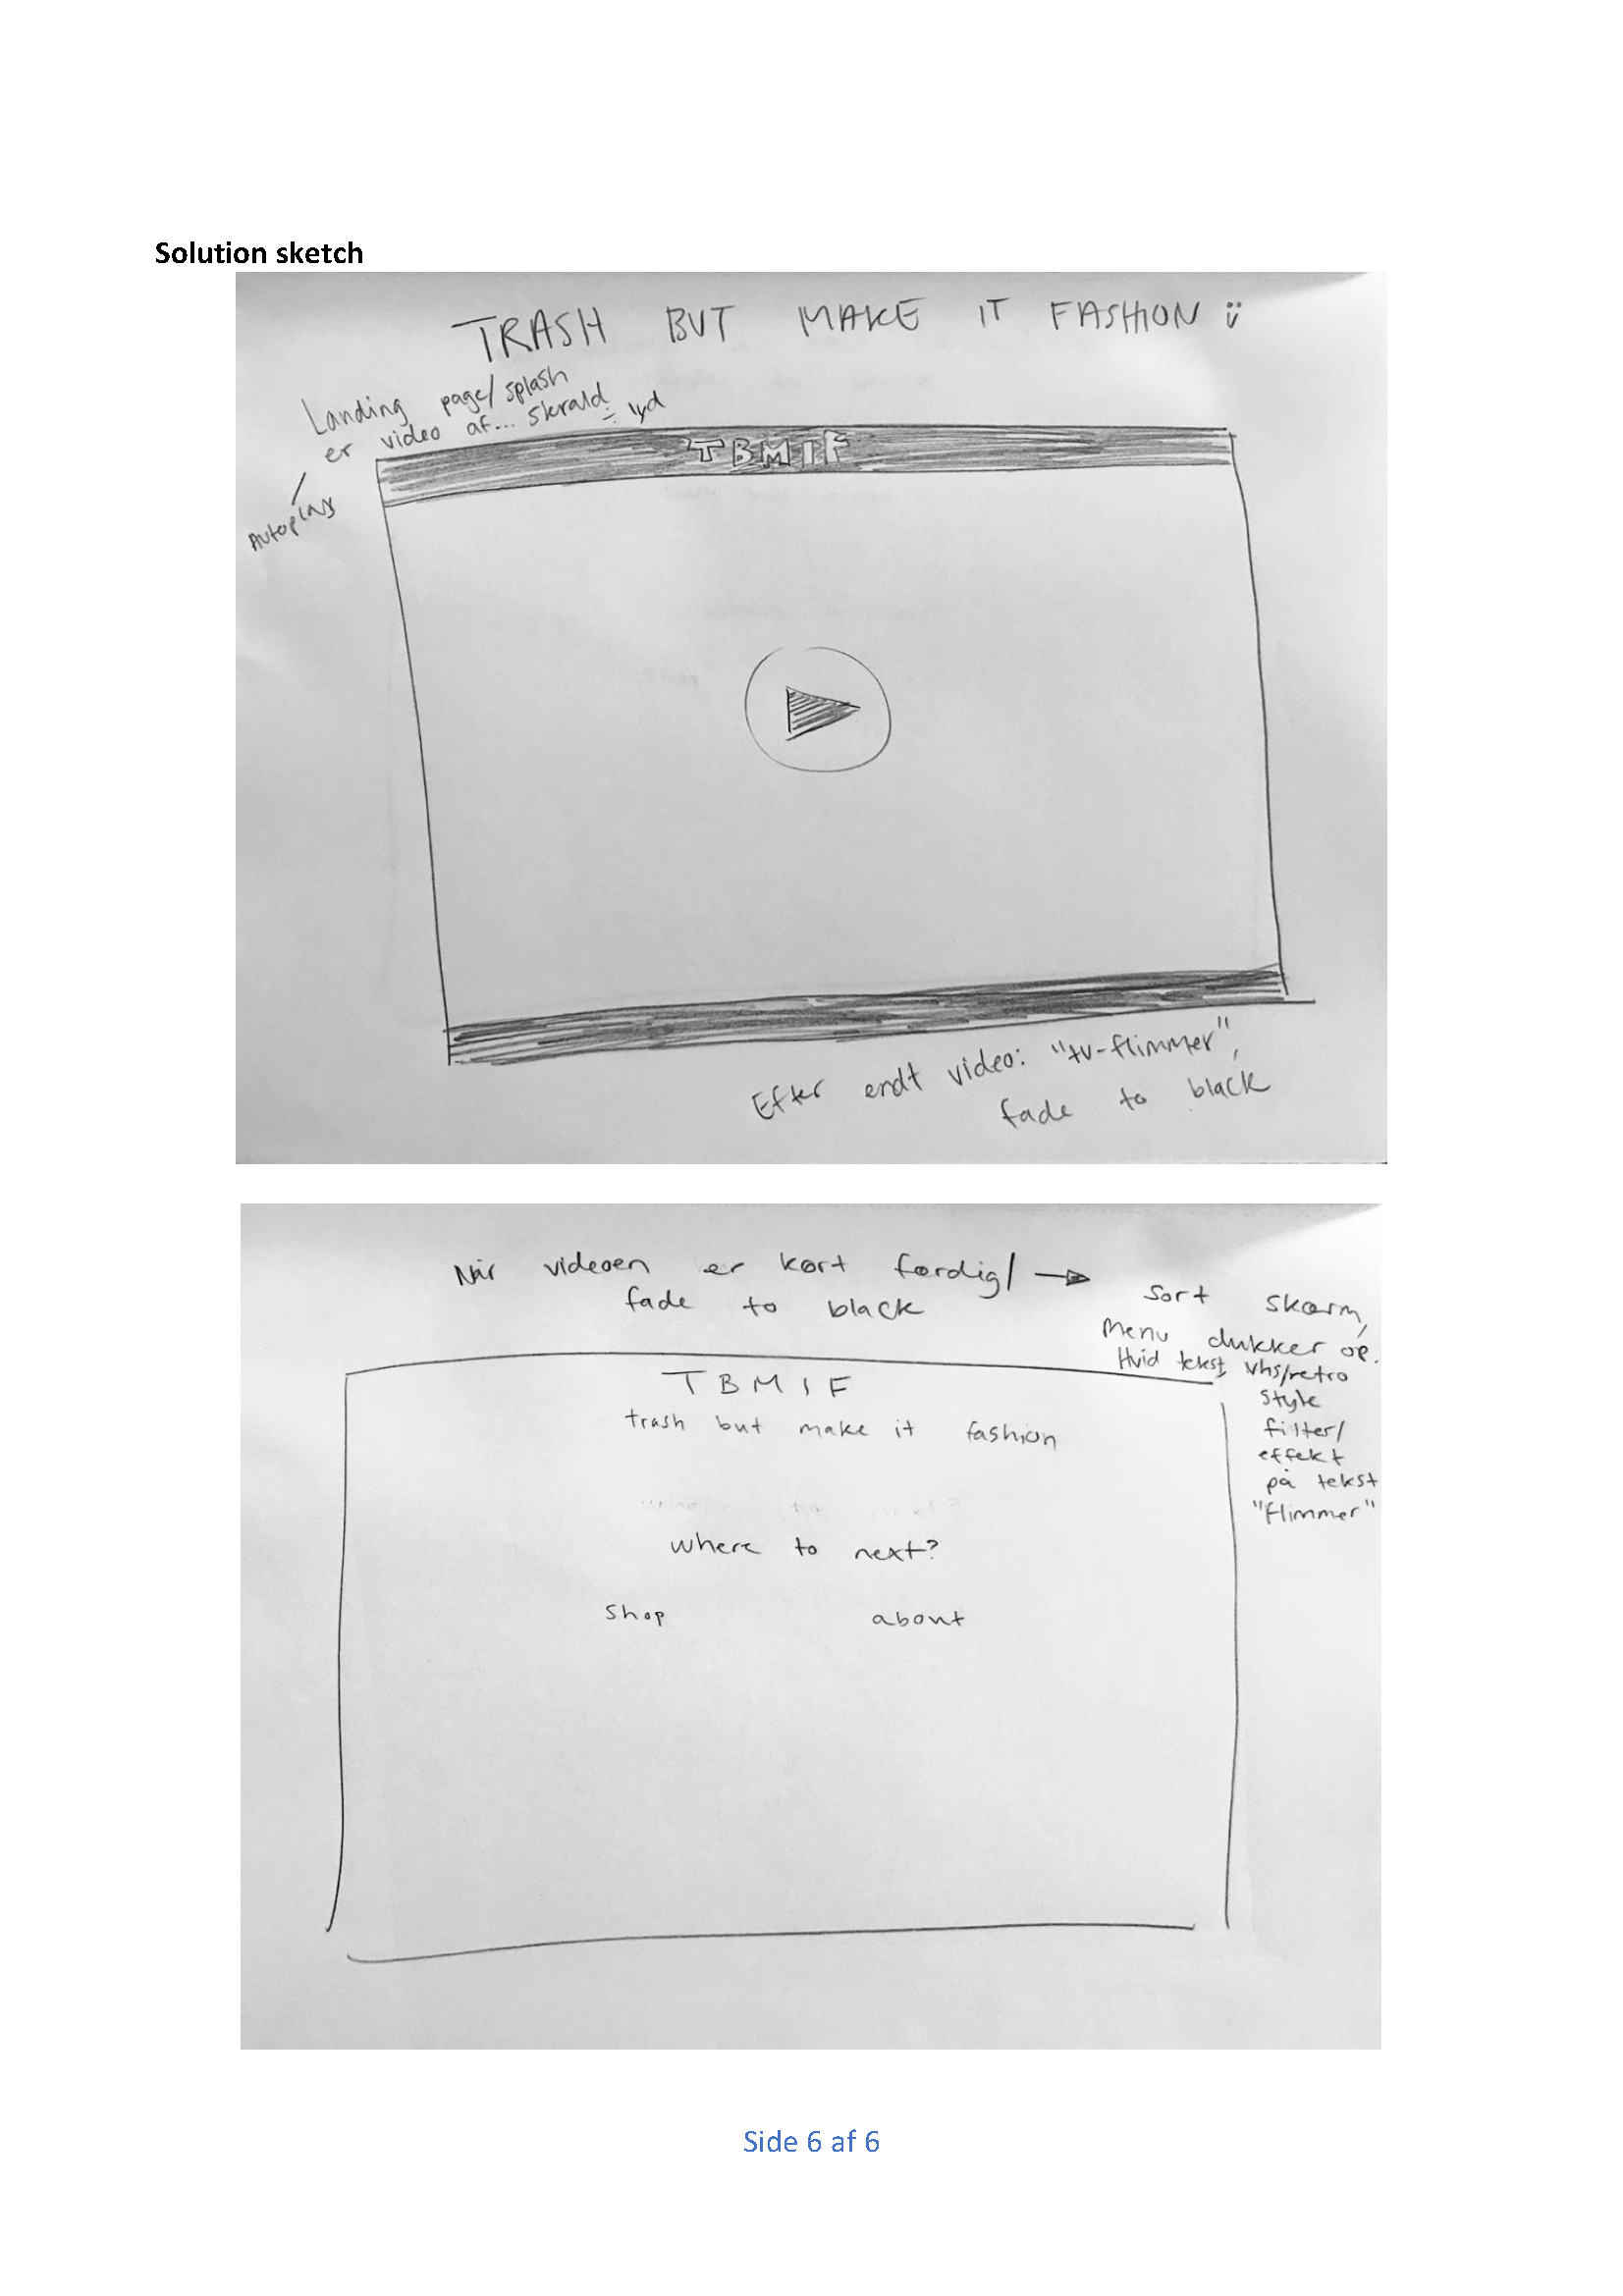 Solution sketch
TRASH BUT MAKE IT FASHION
Landing page/splash
er video af... skrald ÷ lyd
Autoplay
TBMIF
Efter endt video: "tv-flimmer",
fade to black
Når videoen er kørt færdig/ →
fade to black
Sort skærm,
Menu dukker op.
Hvid tekst, vhs/retro
style
filter/
effekt
på tekst
"flimmer"
TBMIF
trash but make it fashion
where to next?
shop about
Side 6 af 6